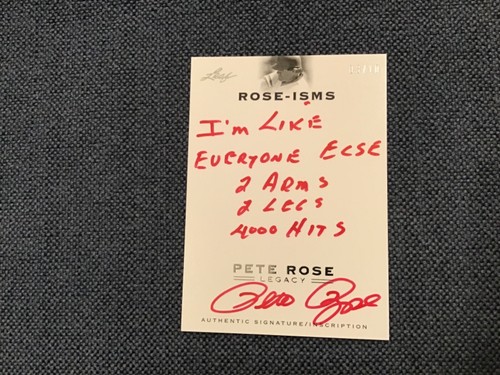 Leaf
ROSE-ISMS
I'm LIKE
EVERYONE ELSE
2 ARMS
2 LEGS
4000 HITS
PETE ROSE
LEGACY
Pete Rose
AUTHENTIC SIGNATURE/INSCRIPTION